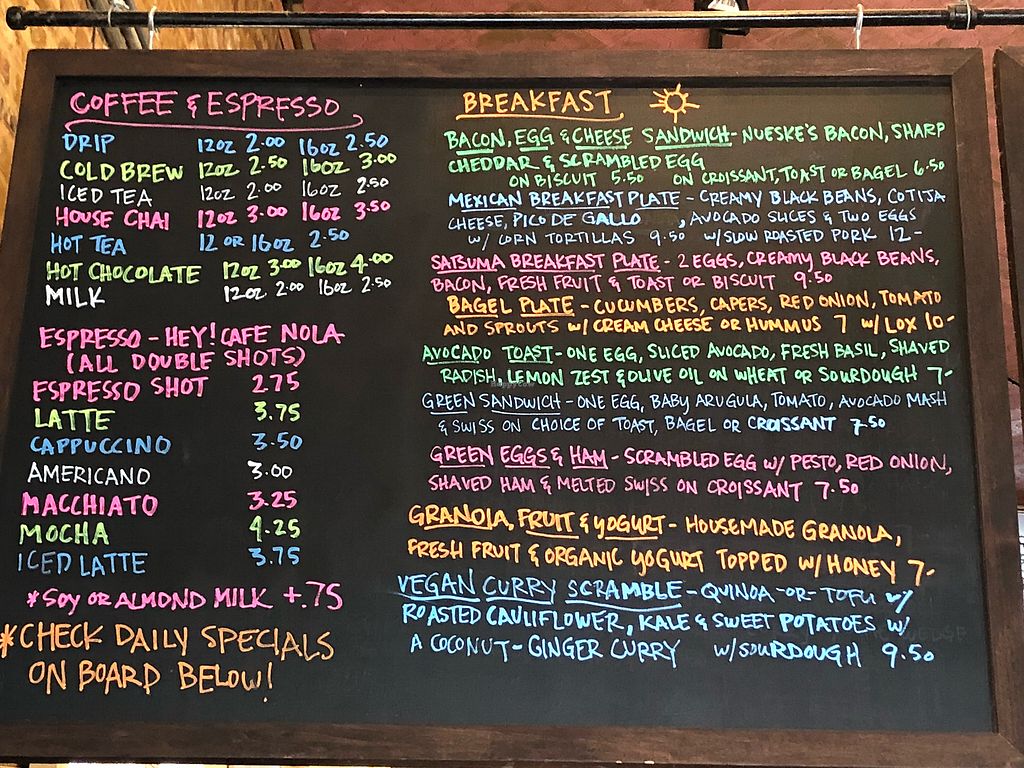 COFFEE & ESPRESSO
DRIP 12oz 2.00 16oz 2.50
COLD BREW 12oz 2.50 16oz 3.00
ICED TEA 12oz 2.00 16oz 2.50
HOUSE CHAI 12oz 3.00 16oz 3.50
HOT TEA 12 OR 16oz 2.50
HOT CHOCOLATE 12oz 3.00 16oz 4.00
MILK 12oz 2.00 16oz 2.50
ESPRESSO - HEY! CAFE NOLA
(ALL DOUBLE SHOTS)
ESPRESSO SHOT 2.75
LATTE 3.75
CAPPUCCINO 3.50
AMERICANO 3.00
MACCHIATO 3.25
MOCHA 4.25
ICED LATTE 3.75
*SOY OR ALMOND MILK +.75
*CHECK DAILY SPECIALS
ON BOARD BELOW!
BREAKFAST
BACON, EGG & CHEESE SANDWICH - NUESKE'S BACON, SHARP
CHEDDAR & SCRAMBLED EGG
ON BISCUIT 5.50 ON CROISSANT, TOAST OR BAGEL 6.50
MEXICAN BREAKFAST PLATE - CREAMY BLACK BEANS, COTIJA
CHEESE, PICO DE GALLO , AVOCADO SLICES & TWO EGGS
W/ CORN TORTILLAS 9.50 W/SLOW ROASTED PORK 12-
SATSUMA BREAKFAST PLATE - 2 EGGS, CREAMY BLACK BEANS,
BACON, FRESH FRUIT & TOAST OR BISCUIT 9.50
BAGEL PLATE - CUCUMBERS, CAPERS, RED ONION, TOMATO
AND SPROUTS W/ CREAM CHEESE OR HUMMUS 7 W/ LOX 10-
AVOCADO TOAST - ONE EGG, SLICED AVOCADO, FRESH BASIL, SHAVED
RADISH, LEMON ZEST & OLIVE OIL ON WHEAT OR SOURDOUGH 7-
GREEN SANDWICH - ONE EGG, BABY ARUGULA, TOMATO, AVOCADO MASH
& SWISS ON CHOICE OF TOAST, BAGEL OR CROISSANT 7.50
GREEN EGGS & HAM - SCRAMBLED EGG W/ PESTO, RED ONION,
SHAVED HAM & MELTED SWISS ON CROISSANT 7.50
GRANOLA, FRUIT & YOGURT - HOUSEMADE GRANOLA,
FRESH FRUIT & ORGANIC YOGURT TOPPED W/ HONEY 7-
VEGAN CURRY SCRAMBLE - QUINOA -OR- TOFU W/
ROASTED CAULIFLOWER, KALE & SWEET POTATOES W/
A COCONUT-GINGER CURRY W/SOURDOUGH 9.50